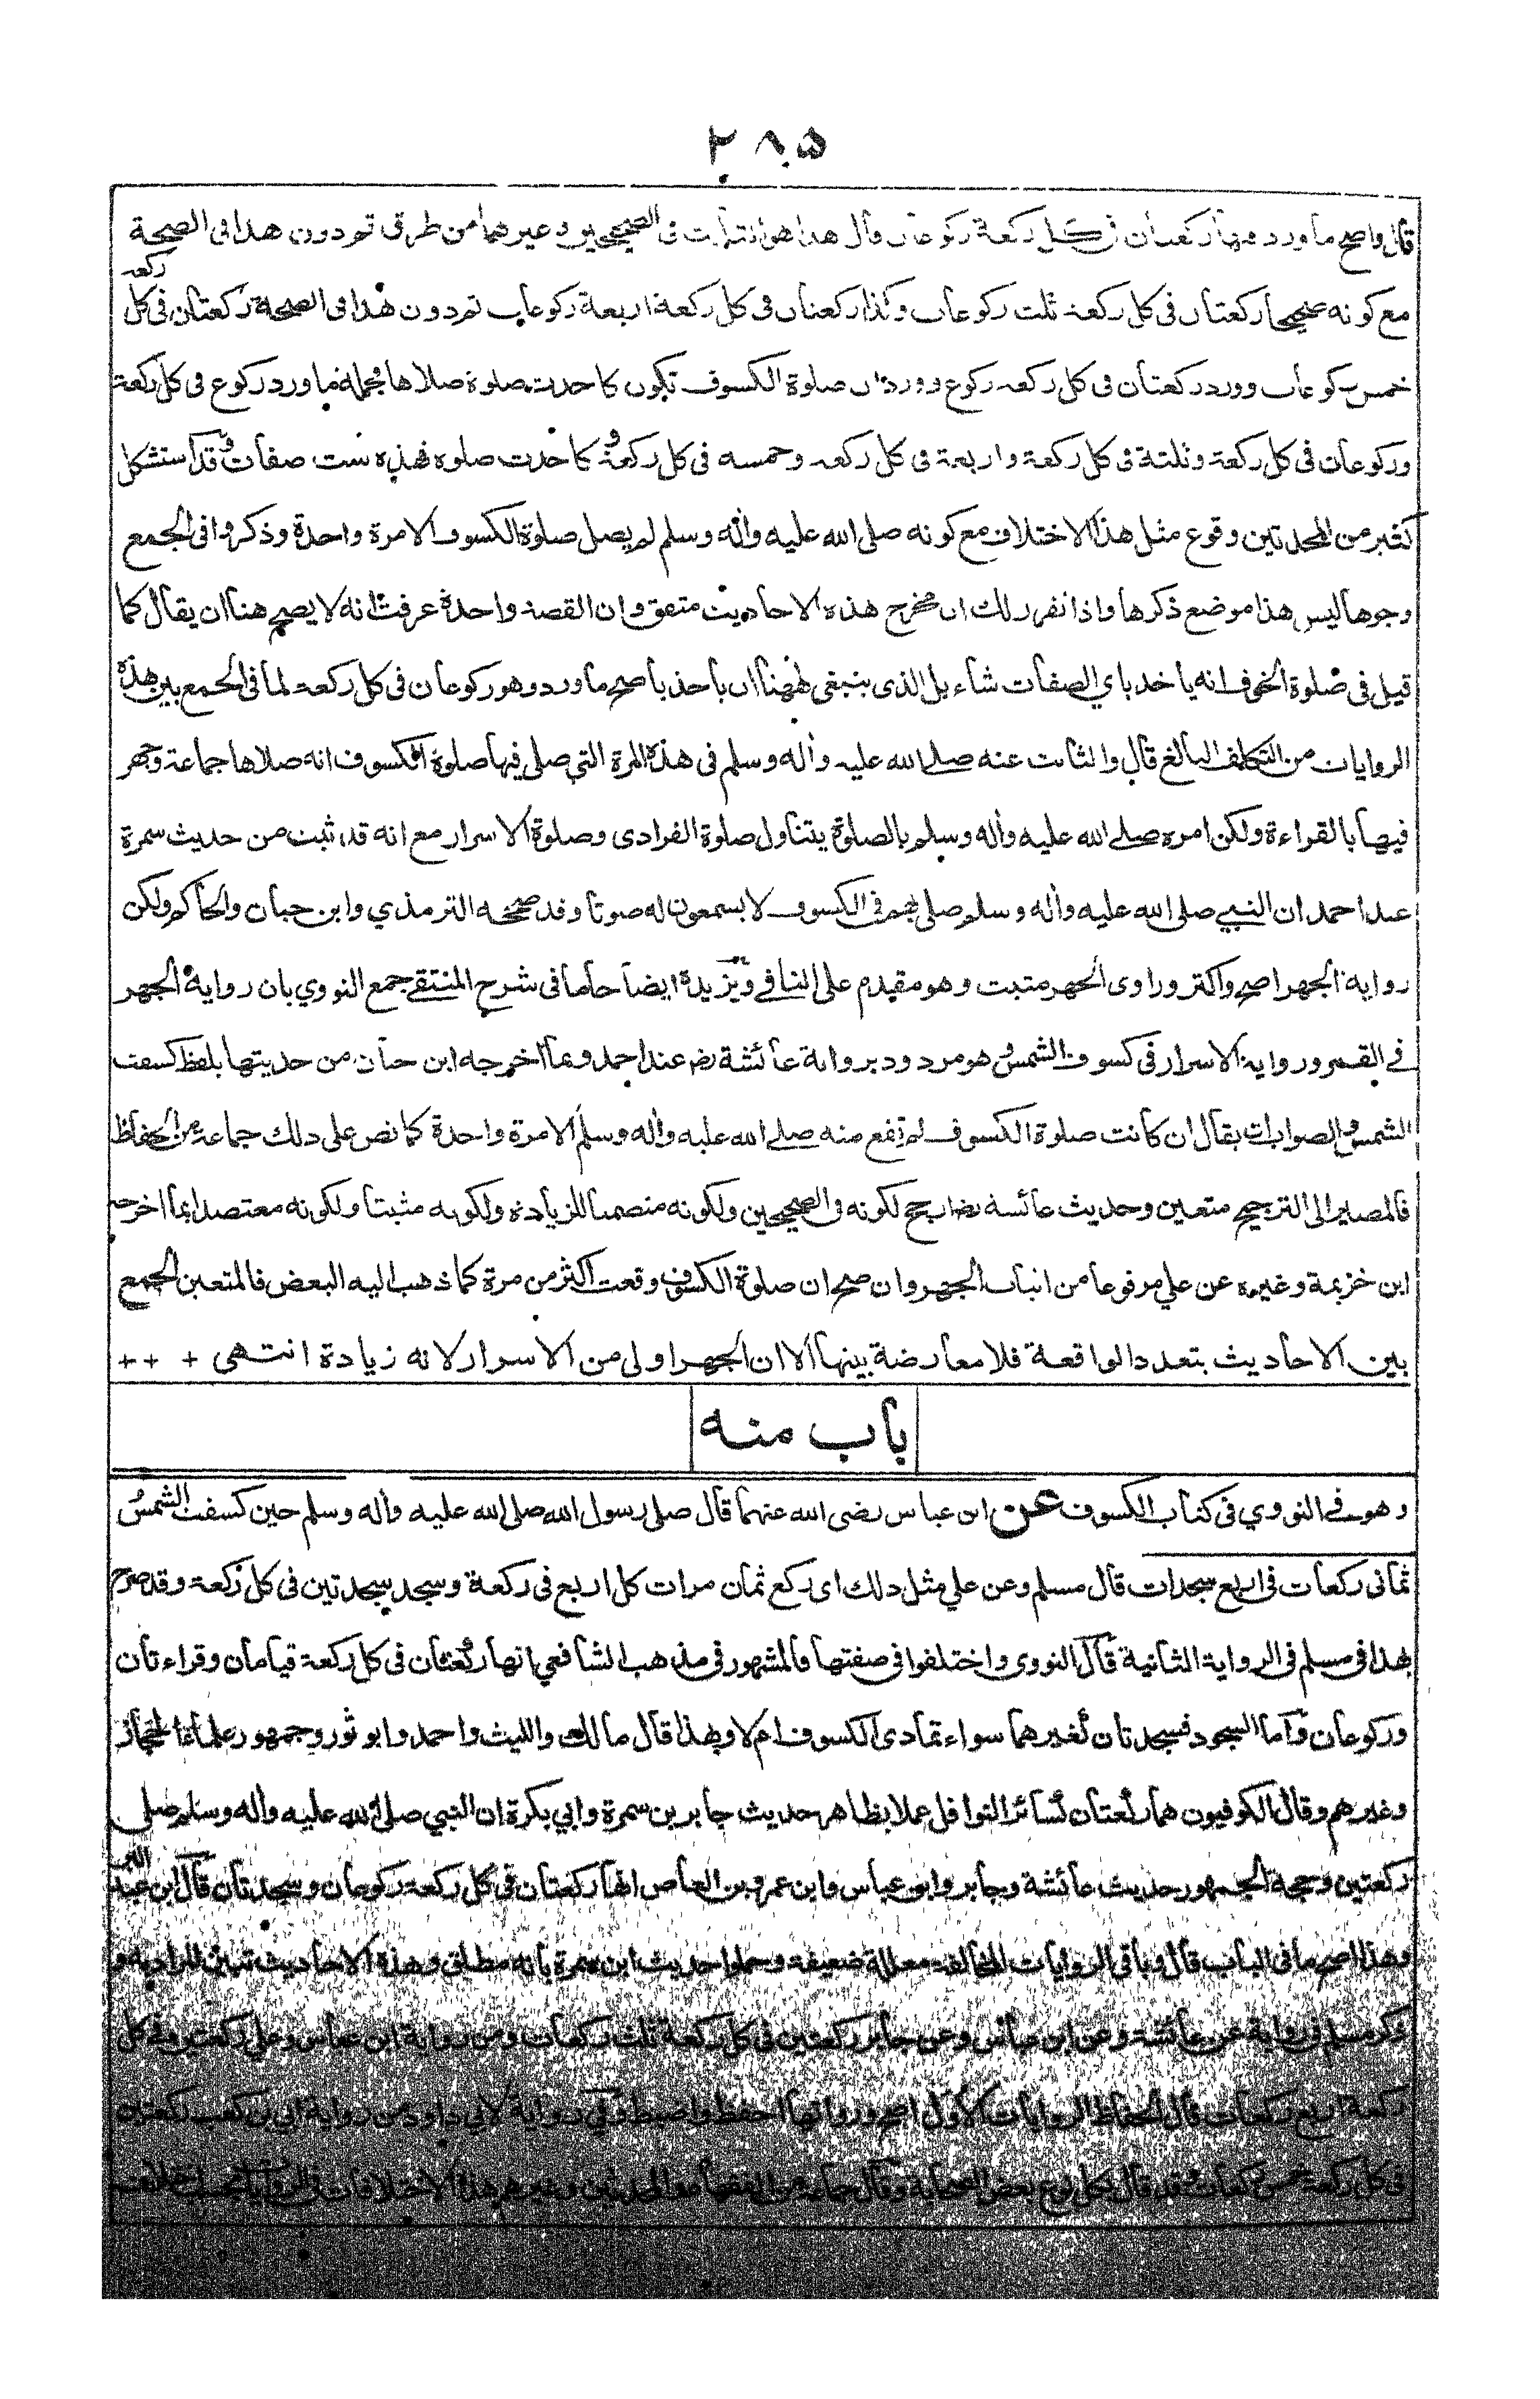 ٢٨٥
قال واصح ما ورد منها ركعتان في كل ركعة ركوعان قال هذا هو الثابت في الصحيحين وغيرهما من طرق ثم دون هذا في الصحة
مع كونه صحيحا ركعتان في كل ركعة ثلث ركوعات وكذا ركعتان في كل ركعة اربعة ركوعات ثم دون هذا في الصحة ركعتان في كل ركعة
خمس ركوعات وورد ركعتان في كل ركعة ركوع وورد ان صلوة الكسوف تكون كاحدث صلوة صلاها فجملة ما ورد ركوع في كل ركعة
وركوعان في كل ركعة وثلثة في كل ركعة واربعة في كل ركعة وخمسة في كل ركعة وكاحدث صلوة فهذه ست صفات وقد استشكل
كثير من المحدثين وقوع مثل هذا الاختلاف مع كونه صلى الله عليه واله وسلم لم يصل صلوة الكسوف الا مرة واحدة وذكروا في الجمع
وجوها ليس هذا موضع ذكرها واذا تقرر لك ان مخرج هذه الاحاديث متفق وان القصة واحدة عرفت انه لا يصح هنا ان يقال كما
قيل في صلوة الخوف انه ياخذ باي الصفات شاء بل الذي ينبغي ههنا ان ياخذ باصح ما ورد وهو ركوعان في كل ركعة لما في الجمع بين هذه
الروايات من التكلف البالغ قال والثابت عنه صلى الله عليه واله وسلم في هذه المرة التي صلى فيها صلوة الكسوف انه صلاها جماعة وجهر
فيها بالقراءة ولكن امره صلى الله عليه واله وسلم بالصلوة يتناول صلوة الفرادى وصلوة الاسرار مع انه قد ثبت من حديث سمرة
عند احمد ان النبي صلى الله عليه واله وسلم صلى بهم في الكسوف لا يسمعون له صوتا وقد صححه الترمذي وابن حبان والحاكم ولكن
رواية الجهر اصح واكثر وراوى الجهر مثبت وهو مقدم على النافي ويزيدة ايضاحا ما في شرح المنتقى جمع النووي بان رواية الجهر
في القمر ورواية الاسرار في كسوف الشمس وهو مردود برواية عائشة رض عند احمد وما اخرجه ابن حبان من حديثها بلفظ كسفت
الشمس والصواب ان يقال ان كانت صلوة الكسوف لم تقع منه صلى الله عليه واله وسلم الا مرة واحدة كما نص على ذلك جماعة من الحفاظ
فالمصير الى الترجيح متعين وحديث عائشة رض ارجح لكونه في الصحيحين ولكونه متضمنا للزيادة ولكونه مثبتا ولكونه معتضدا بما اخرجه
ابن خزيمة وغيره عن علي مرفوعا من اثبات الجهر وان صح ان صلوة الكسوف وقعت اكثر من مرة كما ذهب اليه البعض فالمتعين الجمع
بين الاحاديث بتعدد الواقعة فلا معارضة بينها الا ان الجهر اولى من الاسرار لانه زيادة انتهى + + +
باب منه
وهو في النووي في كتاب الكسوف عن ابن عباس رضى الله عنهما قال صلى رسول الله صلى الله عليه واله وسلم حين كسفت الشمس
ثماني ركعات في اربع سجدات قال مسلم وعن علي مثل ذلك اى ركع ثمان مرات كل اربع في ركعة وسجد سجدتين في كل ركعة وقد صرح
بهذا في مسلم في الرواية الثانية قال النووي واختلفوا في صفتها فالمشهور في مذهب الشافعي انها ركعتان في كل ركعة قيامان وقراءتان
وركوعان واما السجود فسجدتان كغيرهما سواء تمادى الكسوف ام لا وبهذا قال مالك والليث واحمد وابو ثور وجمهور علماء الحجاز
وغيرهم وقال الكوفيون هما ركعتان كسائر النوافل عملا بظاهر حديث جابر بن سمرة وابي بكرة ان النبي صلى الله عليه واله وسلم صلى
ركعتين وحجة الجمهور حديث عائشة وجابر وابن عباس وابن عمرو بن العاص انها ركعتان في كل ركعة ركوعان وسجدتان قال ابن عبد البر
وهذا اصح ما في الباب قال وباقي الروايات المخالفة معللة ضعيفة وحملوا حديث ابن سمرة بانه مطلق وهذه الاحاديث تبين المراد به و
ذكر مسلم في رواية عن عائشة وعن ابن عباس وعن جابر ركعتين في كل ركعة ثلث ركعات ومن رواية ابن عباس وعلي ركعتين في كل
ركعة اربع ركعات قال الحفاظ الروايات الاول اصح ورواتها احفظ واضبط وفي رواية لابي داود من رواية ابي بن كعب ركعتين
في كل ركعة خمس ركعات وقد قال بكل نوع بعض الصحابة وقال جماعة من الفقهاء والمحدثين وغيرهم هذا الاختلافات في الروايات بحسب اختلاف